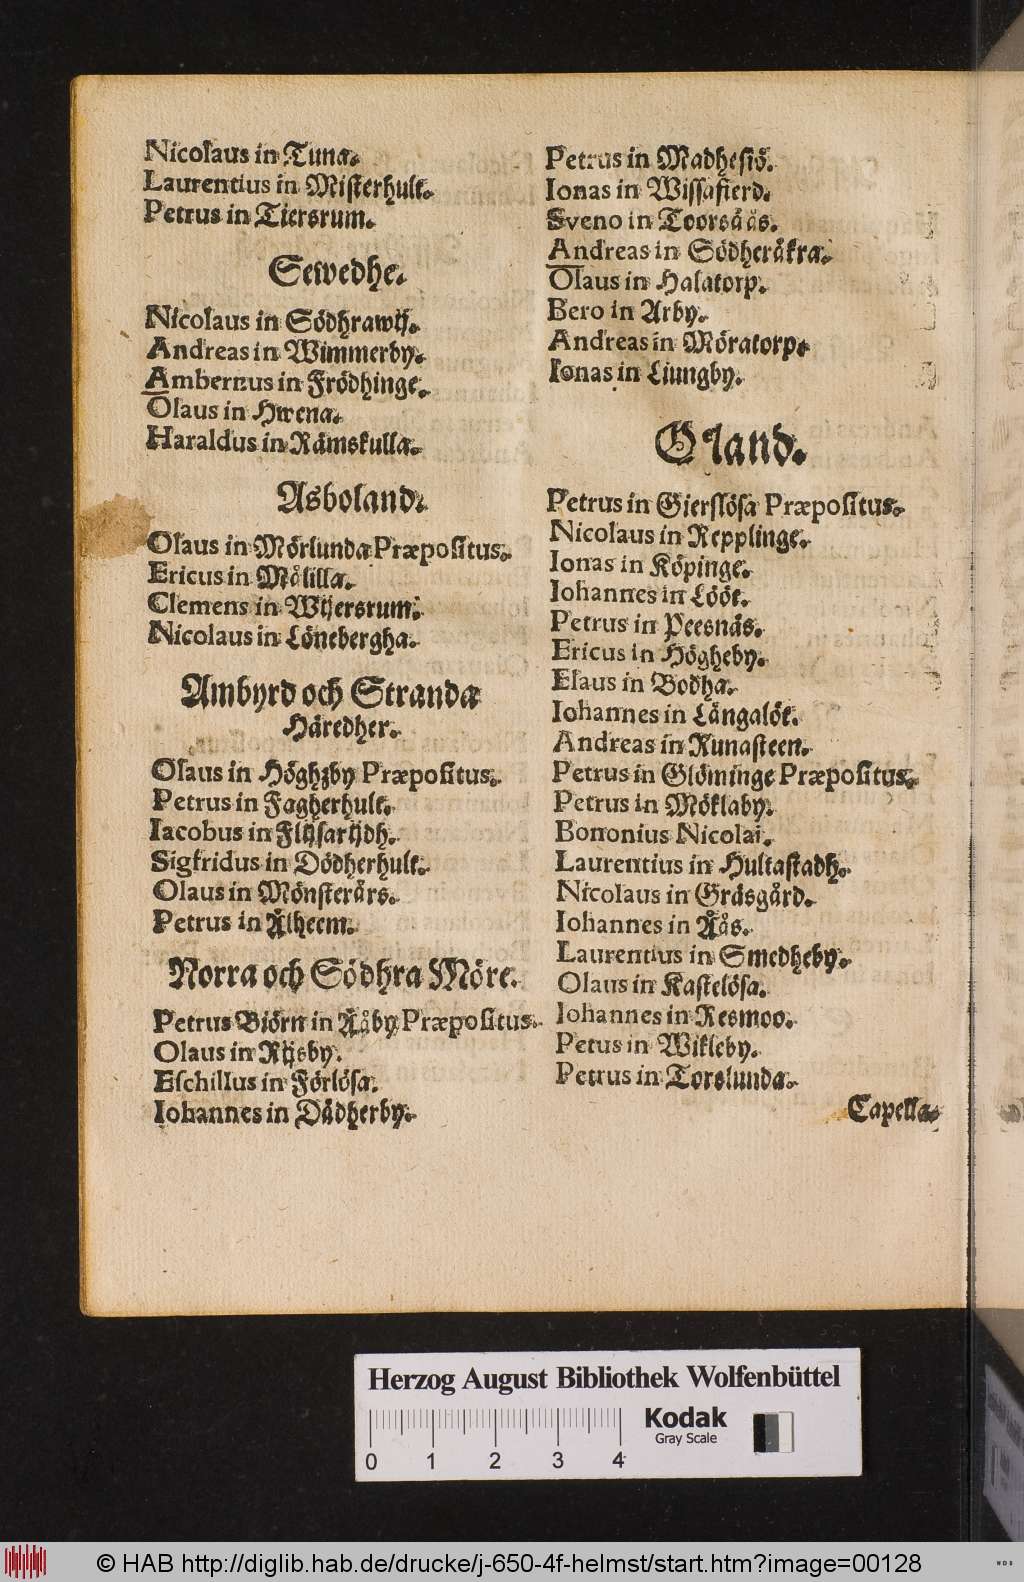 Nicolaus in Tuna.
Laurentius in Misterhult.
Petrus in Tiersrum.
Sewedhe.
Nicolaus in Södhrawij.
Andreas in Wimmerby.
Ambernus in Frödhinge.
Olaus in Hwena.
Haraldus in Rämskulla.
Asboland.
Olaus in Mörlunda Præpositus.
Ericus in Målilla.
Clemens in Wijersrum.
Nicolaus in Lönebergha.
Ambyrd och Stranda
Häredher.
Olaus in Höghzby Præpositus.
Petrus in Fagherhult.
Iacobus in Flijsarijdh.
Sigfridus in Dödherhult.
Olaus in Mönsterårs.
Petrus in Ålheem.
Norra och Södhra Möre.
Petrus Biörn in Ååby Præpositus.
Olaus in Rijsby.
Eschillus in Förlösa.
Iohannes in Dådherby.
Petrus in Madhesiö.
Ionas in Wissafierd.
Sveno in Toorsåås.
Andreas in Södheråkra.
Olaus in Halatorp.
Bero in Arby.
Andreas in Möratorp.
Ionas in Liungby.
Öland.
Petrus in Gierslösa Præpositus.
Nicolaus in Repplinge.
Ionas in Köpinge.
Iohannes in Lööt.
Petrus in Peesnäs.
Ericus in Högheby.
Elaus in Bodha.
Iohannes in Långalöt.
Andreas in Runasteen.
Petrus in Glöminge Præpositus.
Petrus in Möklaby.
Bononius Nicolai.
Laurentius in Hultastadh.
Nicolaus in Gräsgård.
Iohannes in Åås.
Laurentius in Smedheby.
Olaus in Kastelösa.
Iohannes in Resmoo.
Petus in Wikleby.
Petrus in Torslunda.
Capella
Herzog August Bibliothek Wolfenbüttel
Kodak
Gray Scale
0 1 2 3 4
© HAB http://diglib.hab.de/drucke/j-650-4f-helmst/start.htm?image=00128